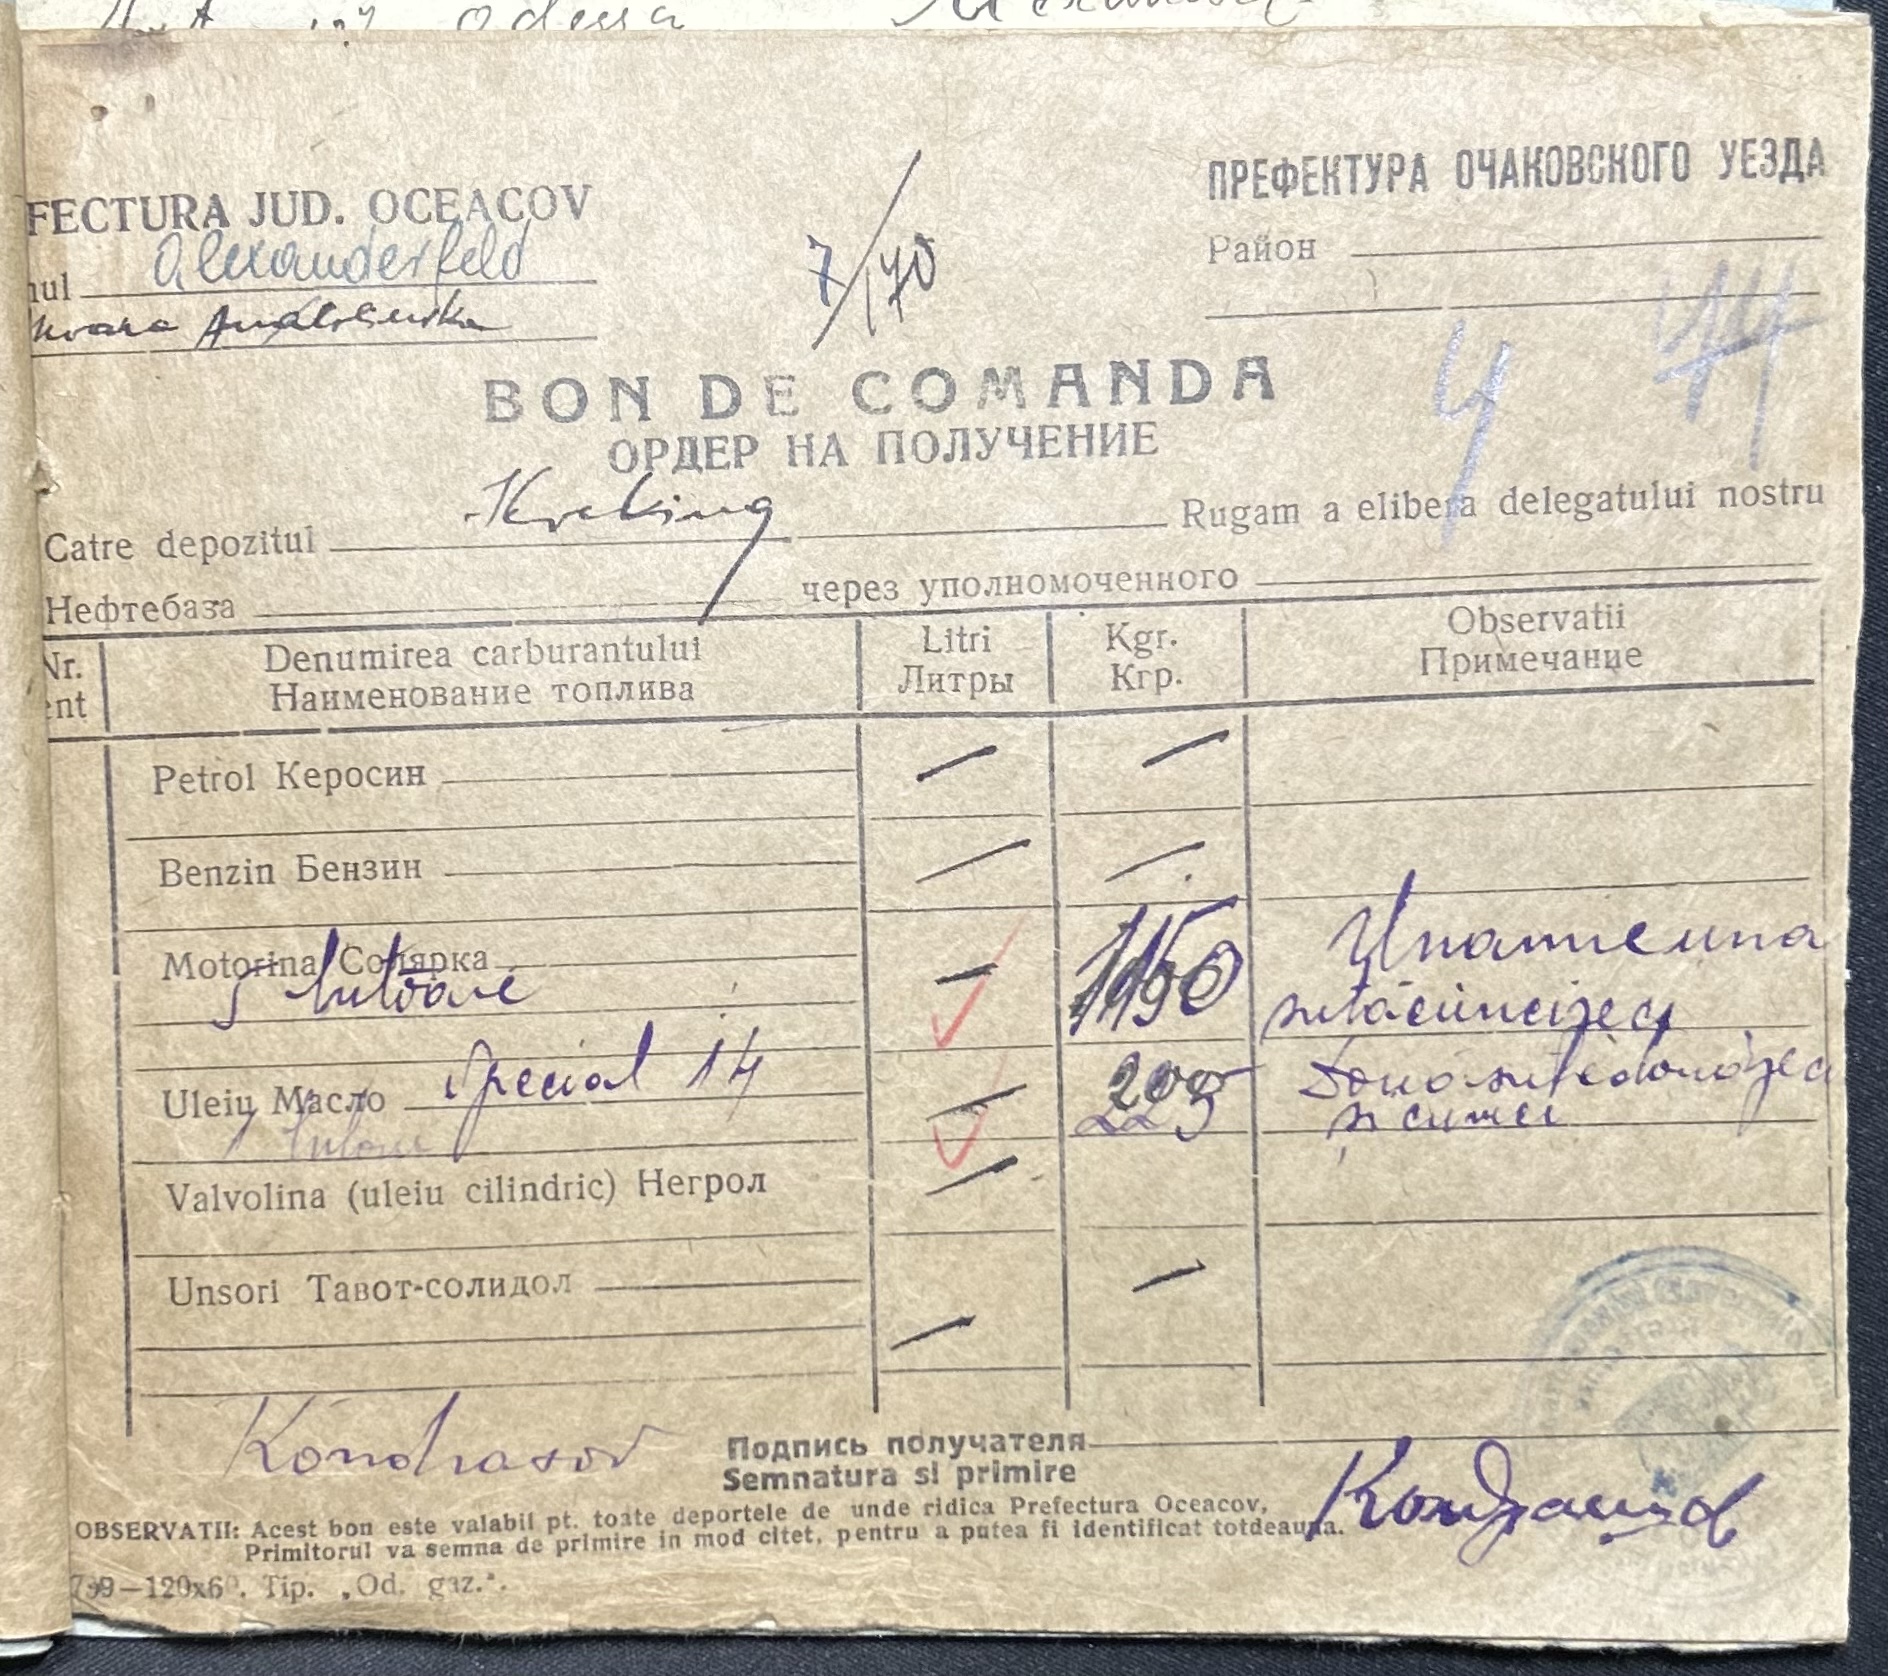 odessa
FECTURA JUD. OCEACOV
ПРЕФЕКТУРА ОЧАКОВСКОГО УЕЗДА
nul Alexanderfeld
7/170
Район
4 44
BON DE COMANDA
ОРДЕР НА ПОЛУЧЕНИЕ
Catre depozitul Kreking Rugam a elibera delegatului nostru
Нефтебаза через уполномоченного
Nr. Denumirea carburantului Litri Kgr. Observatii
ent Наименование топлива Литры Кгр. Примечание
Petrol Керосин — —
Benzin Бензин — —
Motorina Солярка —
5 butoaie
Uleiu Масло Special 14 — 200
1 butoiu 225
Valvolina (uleiu cilindric) Негрол —
Unsori Тавот-солидол —
—
Kondrasov Подпись получателя
Semnatura si primire
OBSERVATII: Acest bon este valabil pt. toate deportele de unde ridica Prefectura Oceacov,
Primitorul va semna de primire in mod citet, pentru a putea fi identificat totdeauna.
799—120x60. Tip. „Od. gaz.".